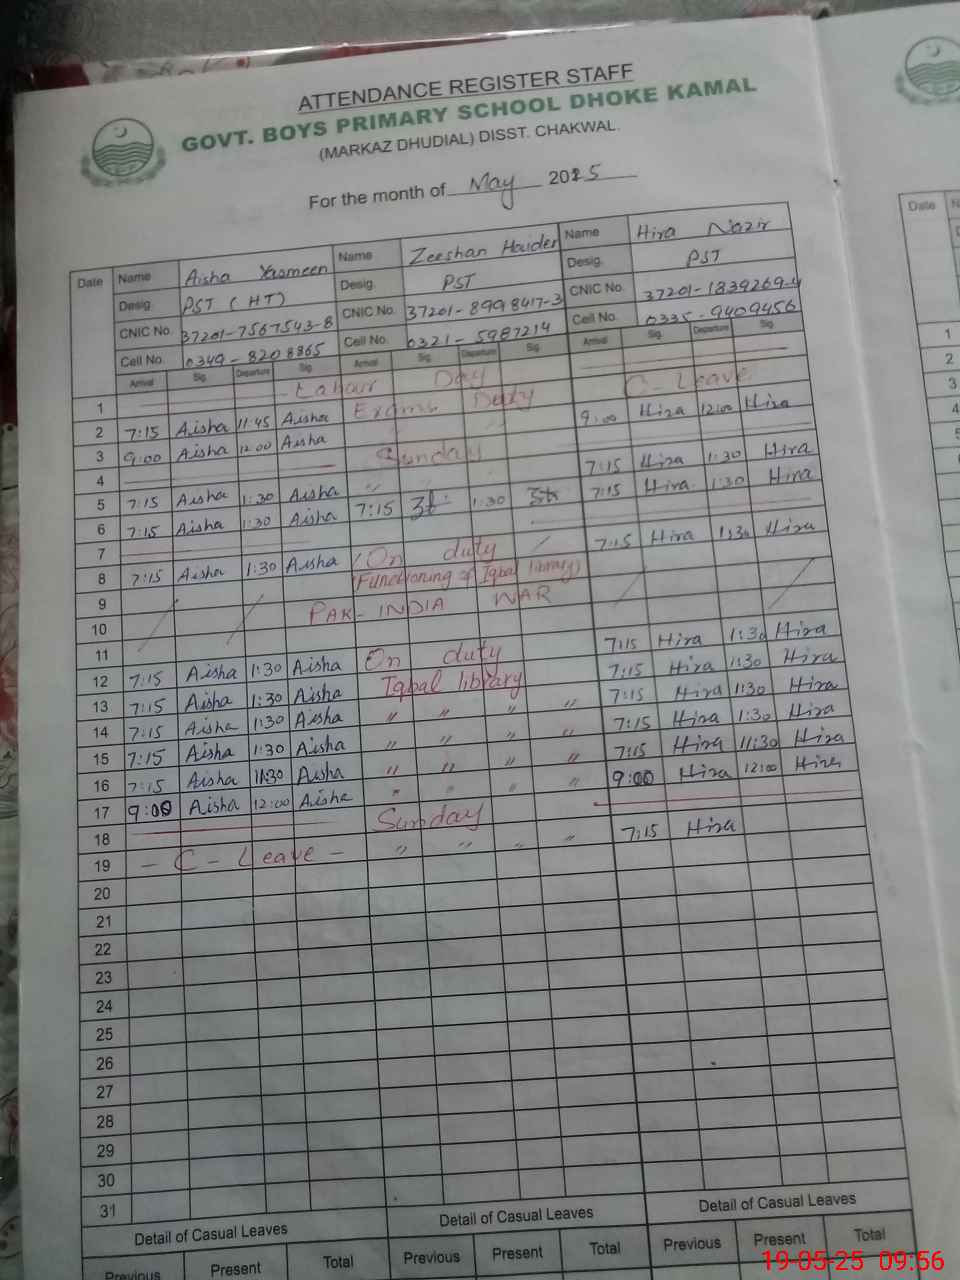 ATTENDANCE REGISTER STAFF
GOVT. BOYS PRIMARY SCHOOL DHOKE KAMAL
(MARKAZ DHUDIAL) DISST. CHAKWAL.
For the month of May 2025
Date Name Aisha Yasmeen Name Zeeshan Haider Name Hira Nazir
Desig. PST (HT) Desig. PST Desig. PST
CNIC No. 37201-7567543-8 CNIC No. 37201-8998417-3 CNIC No. 37201-1839269-4
Cell No. 0349-8208865 Cell No. 0321-5987214 Cell No. 0335-9409456
Arrival Sig. Departure Sig. Arrival Sig. Departure Sig. Arrival Sig. Departure Sig.
1 Labour Day
2 7:15 Aisha 11:45 Aisha Exams Duty C-Leave
3 9:00 Aisha 12:00 Aisha 9:00 Hira 12:00 Hira
4 Sunday
5 7:15 Aisha 1:30 Aisha " " 7:15 Hira 1:30 Hira
6 7:15 Aisha 1:30 Aisha 7:15 1:30 7:15 Hira 1:30 Hira
7
8 7:15 Aisha 1:30 Aisha (On duty 7:15 Hira 1:30 Hira
(Functioning of Iqbal library)
9 PAK-INDIA WAR
10
11
12 7:15 Aisha 1:30 Aisha On duty 7:15 Hira 1:30 Hira
13 7:15 Aisha 1:30 Aisha Iqbal library 7:15 Hira 1:30 Hira
14 7:15 Aisha 1:30 Aisha " " " " 7:15 Hira 1:30 Hira
15 7:15 Aisha 1:30 Aisha " " " " 7:15 Hira 1:30 Hira
16 7:15 Aisha 11:30 Aisha " " " " 7:15 Hira 11:30 Hira
17 9:00 Aisha 12:00 Aisha " " " " 9:00 Hira 12:00 Hira
18 Sunday
19 - C - Leave - " " " " 7:15 Hira
20
21
22
23
24
25
26
27
28
29
30
31
Detail of Casual Leaves Detail of Casual Leaves Detail of Casual Leaves
Previous Present Total Previous Present Total Previous Present Total
Date
1
2
3
4
5
19-05-25 09:56